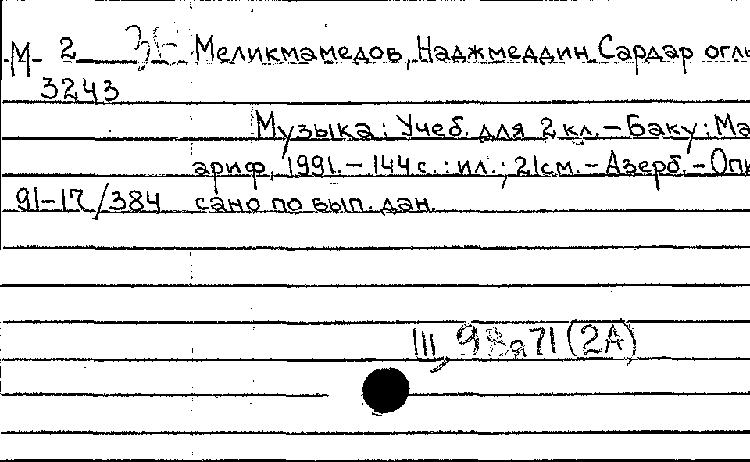 М-2 Меликмамедов, Наджмеддин Сардар оглы
3243
Музыка: Учеб. для 2 кл. - Баку: Ма
ариф, 1991. - 144 с.: ил.; 21 см. - Азерб. - Опи
91-17/384 сано по вып. дан.
Щ 98я71(2А)